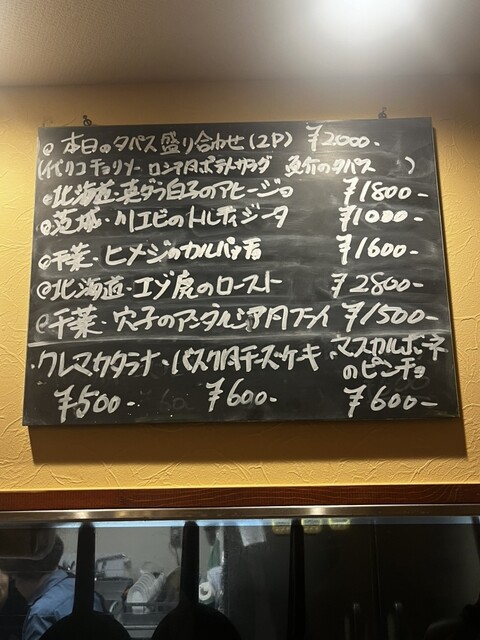 本日のタパス盛り合わせ(2P) ¥2000-
(イベリコチョリソー ロシア風ポテトサラダ 魚介のタパス )
北海道・真ダラ白子のアヒージョ ¥1800-
茨城・川エビのトルティジータ ¥1000-
千葉・ヒメジのカルパッチョ ¥1600-
北海道・エゾ鹿のロースト ¥2800-
千葉・穴子のアンダルシア風フライ ¥1500-
・クレマカタラナ・バスク風チーズケーキ マスカルポーネ
のピンチョ
¥500- ¥600- ¥600-